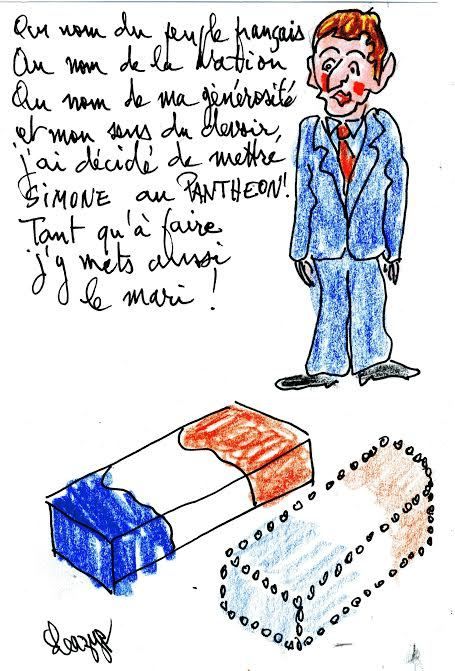 Au nom du peuple français
Au nom de la Nation
Au nom de ma générosité
et mon sens du devoir,
j'ai décidé de mettre
SIMONE au PANTHEON!
Tant qu'à faire
j'y mets aussi
le mari !